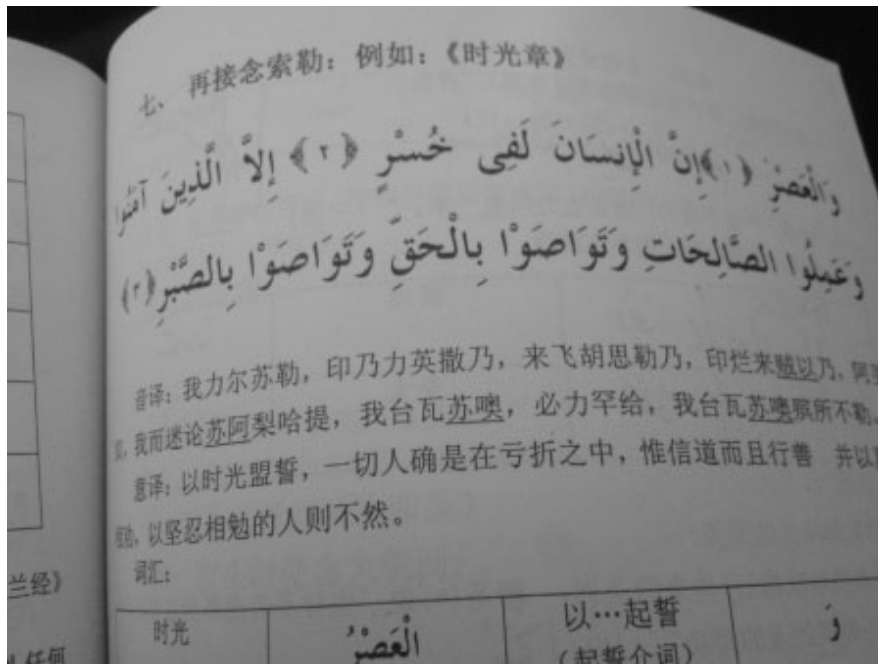 七、再接念索勒：例如：《时光章》
وَالْعَصْرِ ﴿١﴾إِنَّ الْإِنسَانَ لَفِى خُسْرٍ ﴿٢﴾ إِلاَّ الَّذِينَ آمَنُوا
وَعَمِلُوا الصَّالِحَاتِ وَتَوَاصَوْا بِالْحَقِّ وَتَوَاصَوْا بِالصَّبْرِ﴿٣﴾
音译：我力尔苏勒，印乃力英撒乃，来飞胡思勒乃，印烂来贼以乃，阿
我而迷论苏阿梨哈提，我台瓦苏噢，必力罕给，我台瓦苏噢殡所不勒。
意译：以时光盟誓，一切人确是在亏折之中，惟信道而且行善 并以
以坚忍相勉的人则不然。
词汇：
时光 الْعَصْرُ 以…起誓 وَ
(起誓介词)
兰经》
任何